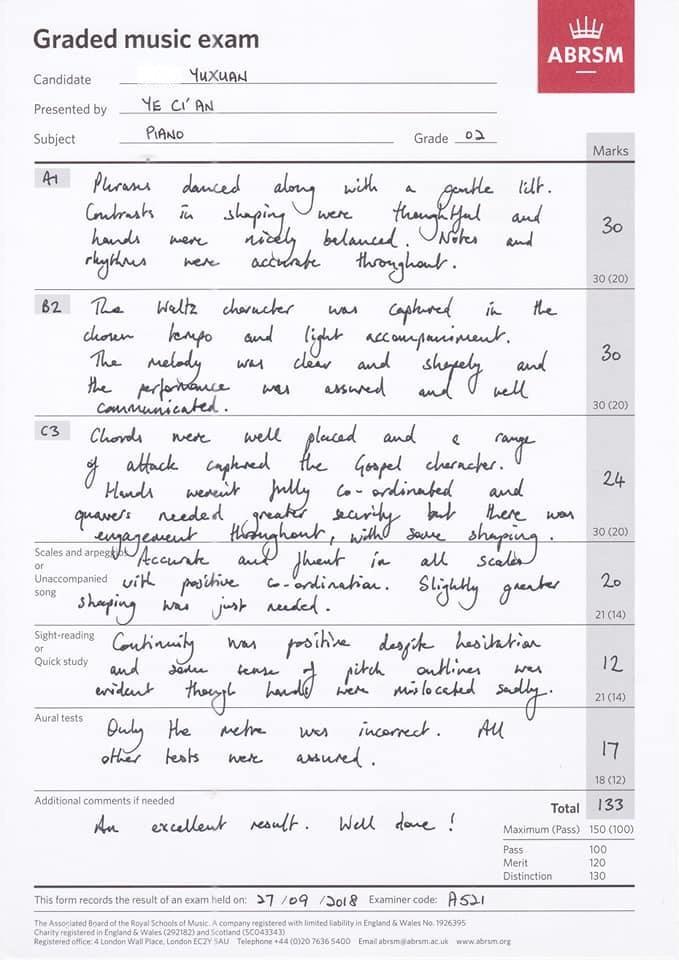 Graded music exam
ABRSM
Candidate YUXUAN
Presented by YE CI'AN
Subject PIANO Grade 02
Marks
A1 Phrases danced along with a gentle lilt.
Contrasts in shaping were thoughtful and
hands were nicely balanced. Notes and
rhythms were accurate throughout.
30
30 (20)
B2 The Waltz character was captured in the
chosen tempo and light accompaniment.
The melody was clear and shapely and
the performance was assured and well
communicated.
30
30 (20)
C3 Chords were well placed and a range
of attack captured the Gospel character.
Hands weren't fully co-ordinated and
quavers needed greater security but there was
engagement throughout, with some shaping.
24
30 (20)
Scales and arpeggios
or
Unaccompanied
song
Accurate and fluent in all scales
with positive co-ordination. Slightly greater
shaping was just needed.
20
21 (14)
Sight-reading
or
Quick study
Continuity was positive despite hesitation
and some sense of pitch outlines was
evident though hands were mislocated sadly.
12
21 (14)
Aural tests
Only the metre was incorrect. All
other tests were assured.
17
18 (12)
Additional comments if needed
An excellent result. Well done!
Total 133
Maximum (Pass) 150 (100)
Pass 100
Merit 120
Distinction 130
This form records the result of an exam held on: 27/09/2018 Examiner code: A521
The Associated Board of the Royal Schools of Music. A company registered with limited liability in England & Wales No. 1926395
Charity registered in England & Wales (292182) and Scotland (SC043343)
Registered office: 4 London Wall Place, London EC2Y 5AU Telephone +44 (0)20 7636 5400 Email abrsm@abrsm.ac.uk www.abrsm.org